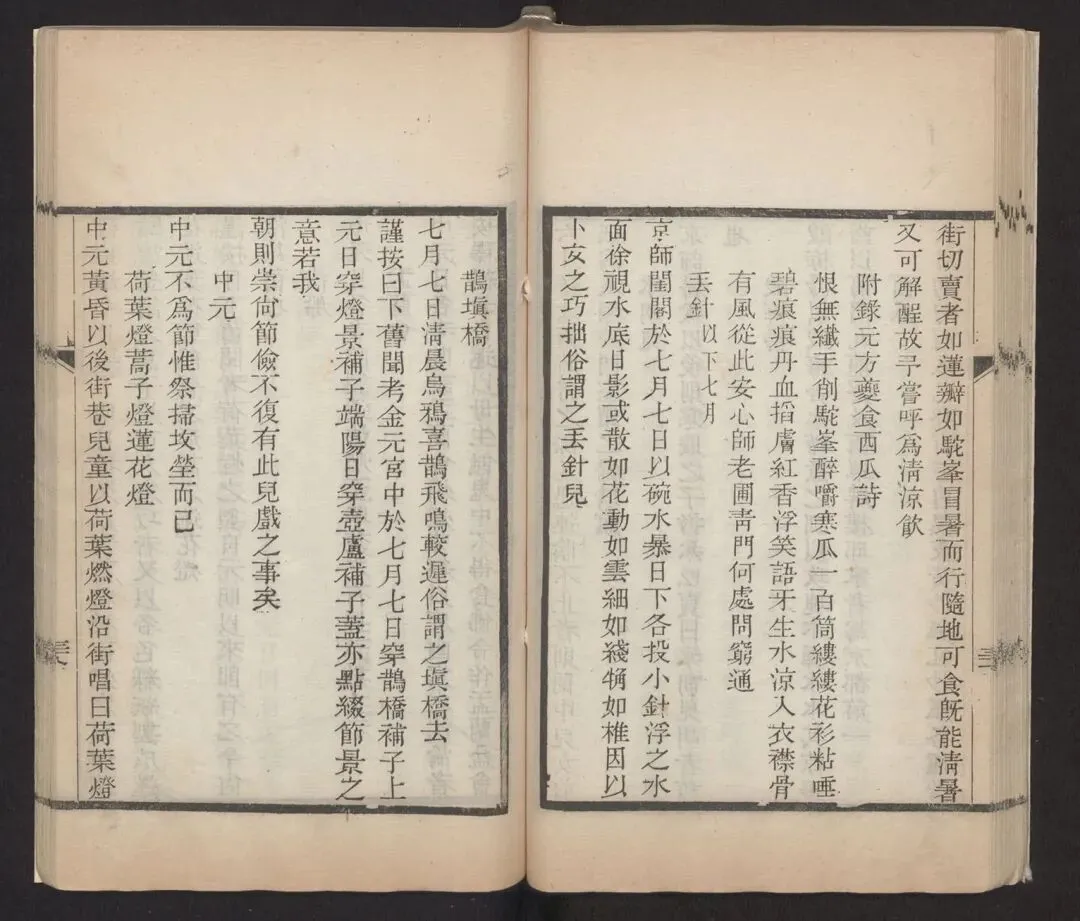 街切賣者如蓮瓣如駝峯冒暑而行隨地可食旣能淸暑
又可解酲故予嘗呼爲淸涼飮
附錄元方夔食西瓜詩
恨無纖手削駝峯醉嚼寒瓜一百筒縷縷花衫粘唾
碧痕痕丹血搯膚紅香浮笑語牙生水涼入衣襟骨
有風從此安心師老圃靑門何處問窮通
丢針以下七月
京師閨閣於七月七日以碗水暴日下各投小針浮之水
面徐視水底日影或散如花動如雲細如綫觕如椎因以
卜女之巧拙俗謂之丢針兒
鵲塡橋
七月七日淸晨烏鴉喜鵲飛鳴較遲俗謂之塡橋去
謹按日下舊聞考金元宮中於七月七日穿鵲橋補子上
元日穿燈景補子端陽日穿壺盧補子蓋亦點綴節景之
意若我
朝則崇尙節儉不復有此兒戲之事矣
中元
中元不爲節惟祭掃墳塋而已
荷葉燈蒿子燈蓮花燈
中元黃昏以後街巷兒童以荷葉燃燈沿街唱曰荷葉燈